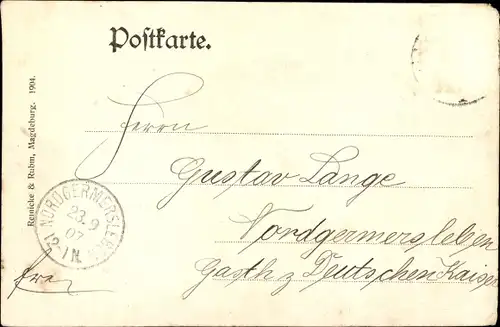 Postkarte.
Herrn
Gustav Lange
Nordgermersleben
Gasth z Deutschen Kaiser
frei
Rennicke & Ruhm, Magdeburg. 1904.
NORDGERMERSLEBEN
23.9
07
12-1N.